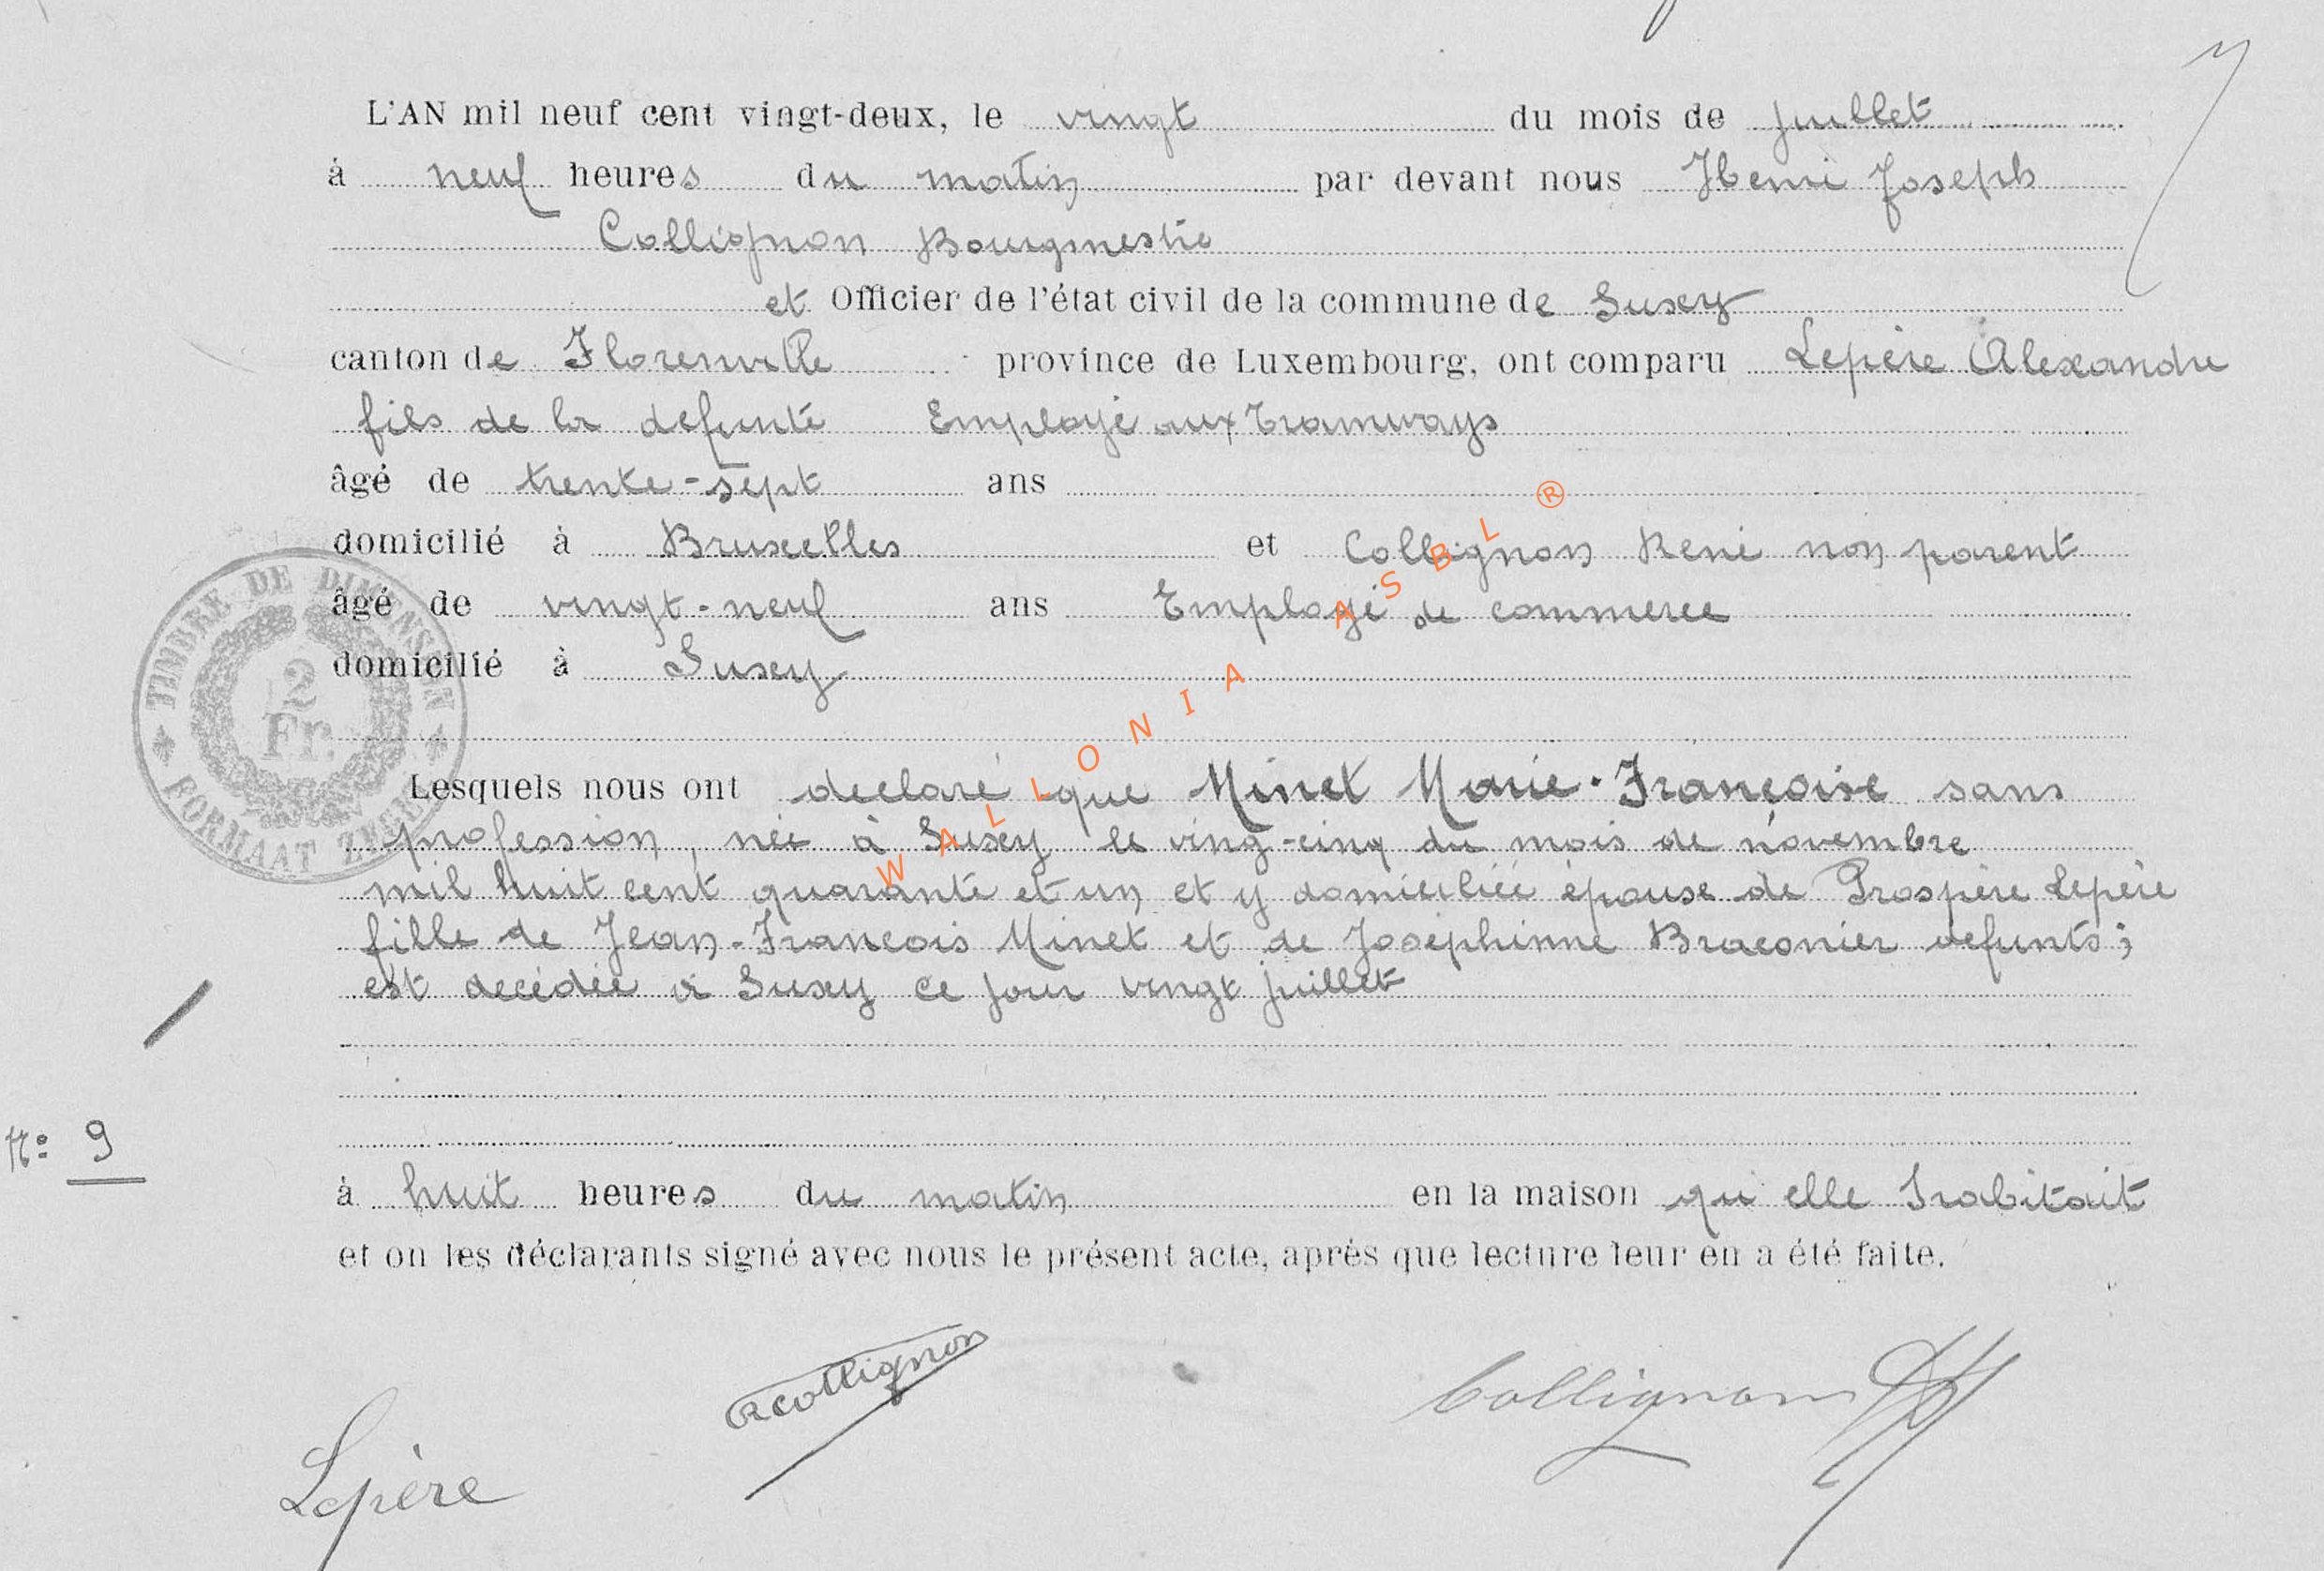 L'AN mil neuf cent vingt-deux, le vingt du mois de juillet
à neuf heures du matin par devant nous Henri Joseph
Collignon Bourgmestre
et Officier de l'état civil de la commune de Suxy
canton de Florenville province de Luxembourg, ont comparu Lepère Alexandre
fils de la défunte Employé aux Tramways
âgé de trente-sept ans
domicilié à Bruxelles et Collignon René non parent
âgé de vingt-neuf ans Employé de commerce
domicilié à Suxy
TIMBRE DE DIMENSION
2
Fr.
FORMAAT ZEGEL
Lesquels nous ont déclaré que Minet Marie-Françoise sans
profession, née à Suxy le ving-cinq du mois de novembre
mil huit cent quarante et un et y domiciliée épouse de Prospère Lepère
fille de Jean-François Minet et de Joséphinne Braconier défunts;
est décédée à Suxy ce jour vingt juillet
N° 9
à huit heures du matin en la maison qu'elle habitait
et on les déclarants signé avec nous le présent acte, après que lecture leur en a été faite.
RCollignon
Collignon
Lepère
WALLONIA ASBL ®